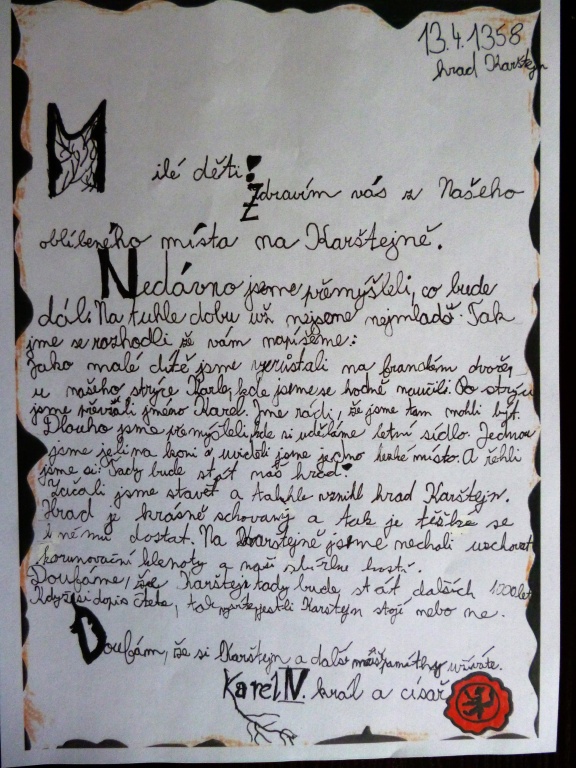 13.4.1358
hrad Karštejn
Milé děti!
Zdravím vás z Našeho
oblíbeného místa na Karštejně.
Nedávno jsme přemýšleli, co bude
dál. Na tuhle dobu už nejsme nejmladší. Tak
jsme se rozhodli že vám napíšeme:
Jako malé dítě jsme vyrůstali na francském dvoře,
u našeho strýce Karla, kde jsme se hodně naučili. Po strýci
jsme převzali jméno Karel. Jsme rádi, že jsme tam mohli být.
Dlouho jsme přemýšleli, kde si uděláme letní sídlo. Jednou
jsme jeli na koni a uviděli jsme jedno hezké místo. A řekli
jsme si: Tady bude stát náš hrad!
Začali jsme stavět a takhle vznikl hrad Karštejn.
Hrad je krásně schovaný a tak je těžké se
k němu dostat. Na Karštejně jsme nechali uschovat
korunovační klenoty a naši sbírku kostí.
Doufáme, že Karštejn tady bude stát dalších 1000 let
Když si dopis čtete, tak zjistěte jestli Karštejn stojí nebo ne.
Doufám, že si Karštejn a další naše památky užíváte.
Karel IV. král a císař